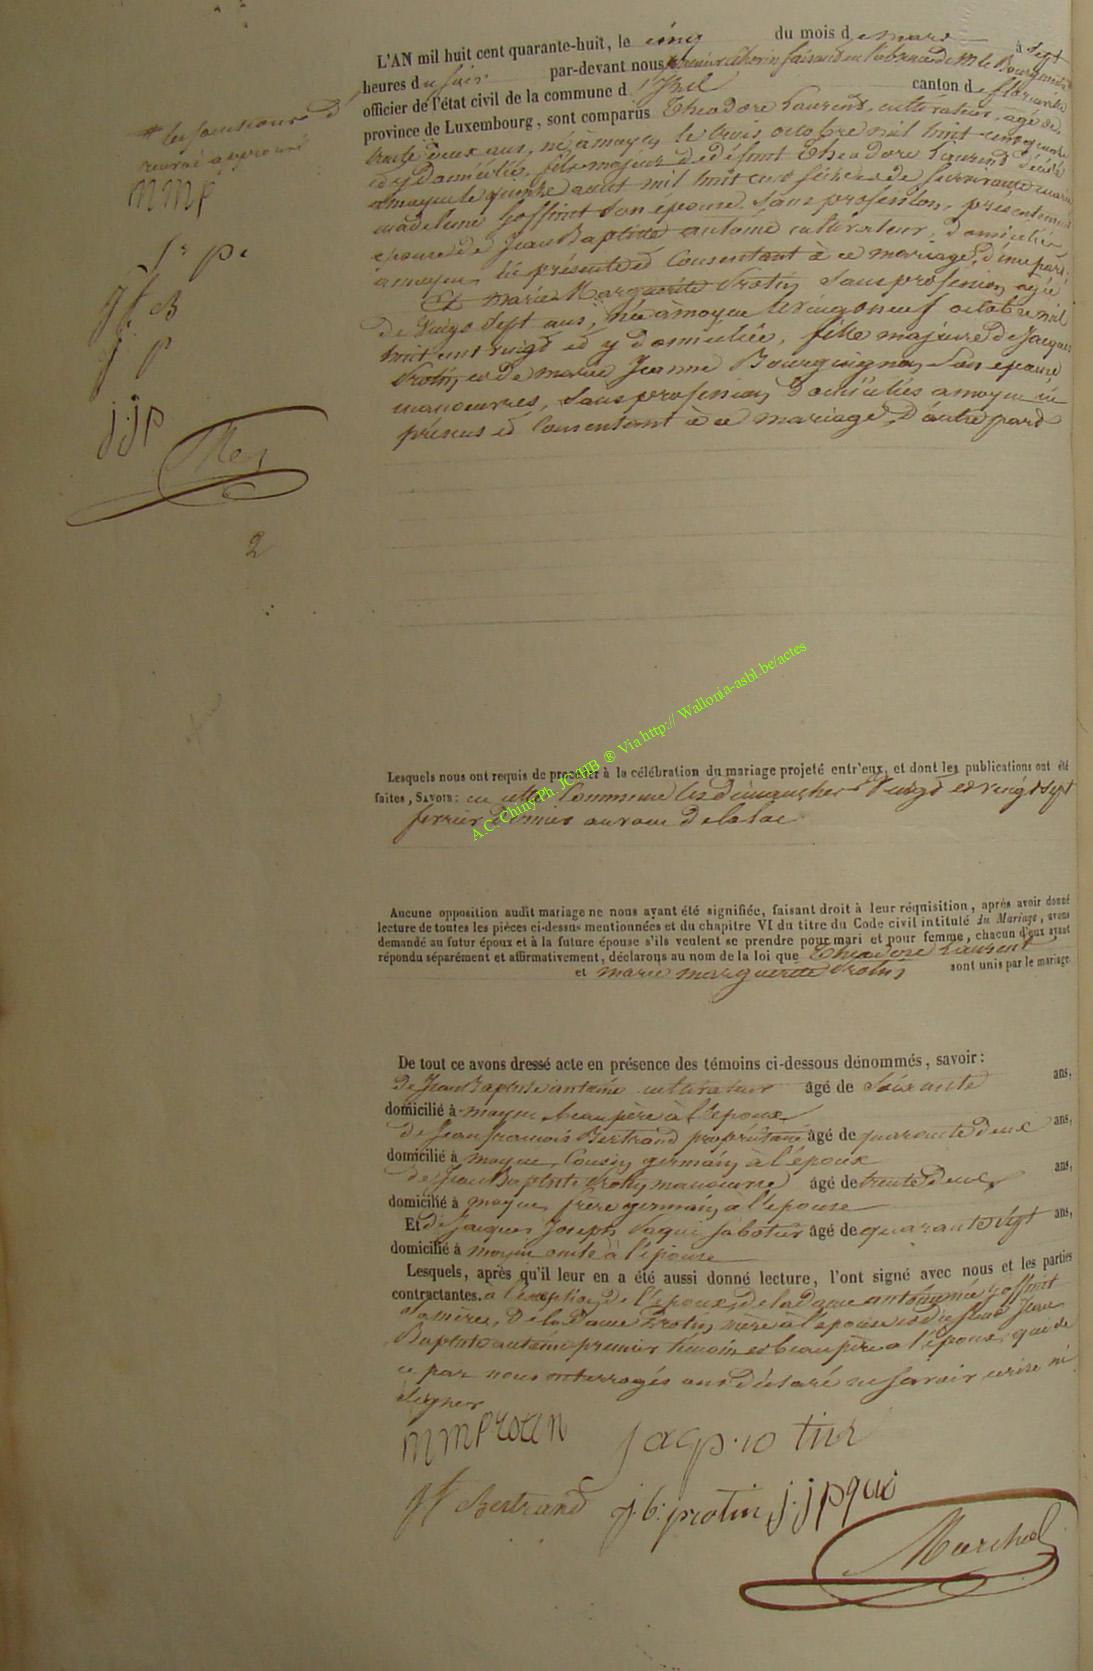 L'AN mil huit cent quarante-huit, le cinq du mois de mars à sept
heures du soir par-devant nous premier Echevin faisant en l'absence de Mr le Bourgmestre
officier de l'état civil de la commune d'Izel canton de florenville
province de Luxembourg, sont comparus Theodore Laurent, cultivateur, agé de
trente deux ans, né à moyen le trois octobre mil huit cent quinze
et y Domicilié, fils majeur de défunt Theodore Laurent décédé
a moyen le quinze aout mil huit cent seize et de survivante marie
madelaine Goffinet son épouse sans profession, présentement
epouse de Jean Baptiste antoine cultivateur, domiciliée
a moyen ici présente et Consentant à ce mariage, d'une part.
Et marie Marguerite Protin sans profession agée
de vingt sept ans, née à moyen le vingt neuf octobre mil
huit cent vingt et y domiciliée, fille majeure de Jacques
Protin et de marie Jeanne Bourguignon son épouse
manoeuvres, sans profession, Domiciliés a moyen ici
présens et Consentant à ce mariage, D'autre part
renvoi approuvé
MMP
J. P.
Jf B
J. P
j.jP
Mar
2
Lesquels nous ont requis de procéder à la célébration du mariage projeté entr'eux, et dont les publications ont été
faites, SAVOIR: en cette Commune les dimanches vingt et vingt sept
fevrier dernier
A.C. Chiny Ph. JC HB ® Via http:// Wallonia-asbl.be/actes
Aucune opposition audit mariage ne nous ayant été signifiée, faisant droit à leur réquisition, après avoir donné
lecture de toutes les pièces ci-dessus mentionnées et du chapitre VI du titre du Code civil intitulé du Mariage, avons
demandé au futur époux et à la future épouse s'ils veulent se prendre pour mari et pour femme, chacun d'eux ayant
répondu séparément et affirmativement, déclarons au nom de la loi que Theodore Laurent
et marie marguerite Protin sont unis par le mariage.
De tout ce avons dressé acte en présence des témoins ci-dessous dénommés, savoir:
De Jean Baptiste antoine cultivateur âgé de soixante ans,
domicilié à moyen beau père à l'epoux
de Jean francois Bertrand propriétaire âgé de quarante deux ans,
domicilié à moyen Cousin germain à l'époux
de Jean Baptiste Protin manoeuvre âgé de trente deux ans,
domicilié à moyen frère germain à l'épouse
Et de Jacques Joseph Paqui sabotier âgé de quarante sept ans,
domicilié à moyen oncle à l'épouse
Lesquels, après qu'il leur en a été aussi donné lecture, l'ont signé avec nous et les parties
contractantes. à l'exception de l'époux, de la Dame antoine née Goffinet
sa mère, De la Dame Protin mère à l'épouse et du sieur Jean
Baptiste antoine premier témoin et beau père a l'époux, qui de
ce par nous interrogés ont déclaré ne savoir écrire ni
signer
MMProtin jacq protin
Jf Bertrand j.b. protin j.jPqui
Marchal